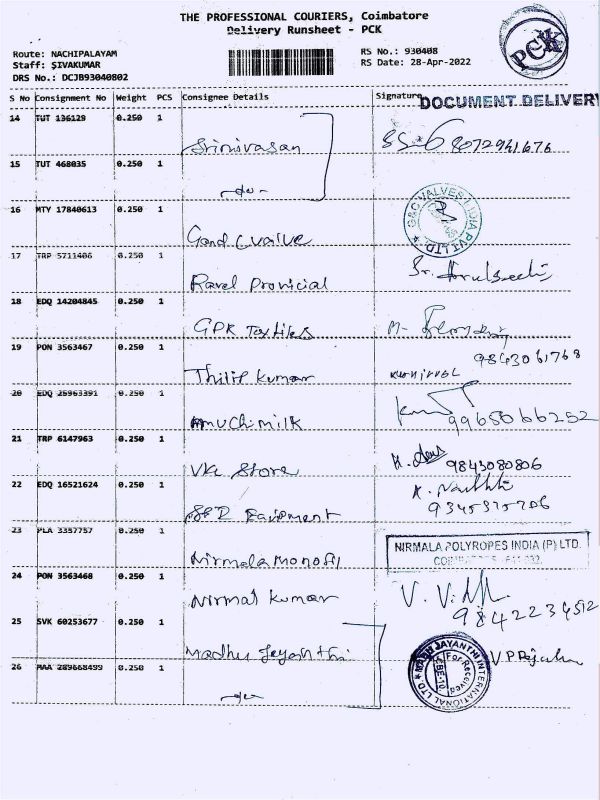 THE PROFESSIONAL COURIERS, Coimbatore
Delivery Runsheet - PCK
PCK
Route: NACHIPALAYAM
Staff: SIVAKUMAR
DRS No.: DCJB93040802
RS No.: 930408
RS Date: 28-Apr-2022
S No Consignment No Weight PCS Consignee Details Signature
DOCUMENT DELIVERY
14 TUT 136129 0.250 1
Srinivasan 8072941676
15 TUT 468035 0.250 1
-do-
16 MTY 17840613 0.250 1
G&C VALVES INDIA PVT LTD.
17 TRP 5711406 0.250 1
Provicial
18 EDQ 14204845 0.250 1
GPR Textiles M-
19 PON 3563467 0.250 1
9843061768
Thilip Kumar
20 EDQ 25963391 0.250 1
milk 9965066252
21 TRP 6147963 0.250 1
Store 9843080806
22 EDQ 16521624 0.250 1
23 PLA 3357757 0.250 1
NIRMALA POLYROPES INDIA (P) LTD.
Nirmala
24 PON 3563468 0.250 1
Nirmal Kumar 9842234512
25 SVK 60253677 0.250 1
Madhu Jayanthi
MADHU JAYANTHI INTERNATIONAL LTD.
For Received
CBE-10
26 MAA 289668499 0.250 1
-do-